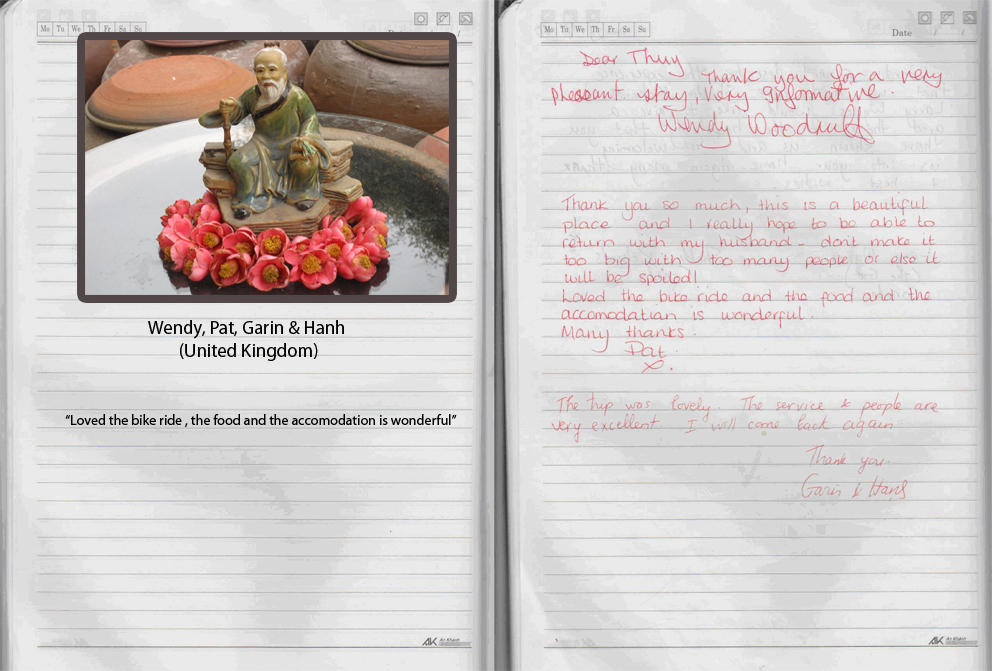 Mo Tu We Th Fr Sa Su
Wendy, Pat, Garin & Hanh
(United Kingdom)
“Loved the bike ride , the food and the accomodation is wonderful”
AK An Khánh
Mo Tu We Th Fr Sa Su
Date / /
Dear Thuy
Thank you for a very
pleasant stay, very informative.
Wendy Woodruff
Thank you so much, this is a beautiful
place and I really hope to be able to
return with my husband - don't make it
too big with too many people or else it
will be spoiled!
Loved the bike ride and the food and the
accomodation is wonderful.
Many thanks.
Pat.
x.
The trip was lovely. The service & people are
very excellent. I will come back again
Thank you.
Garin & Hanh
AK An Khánh